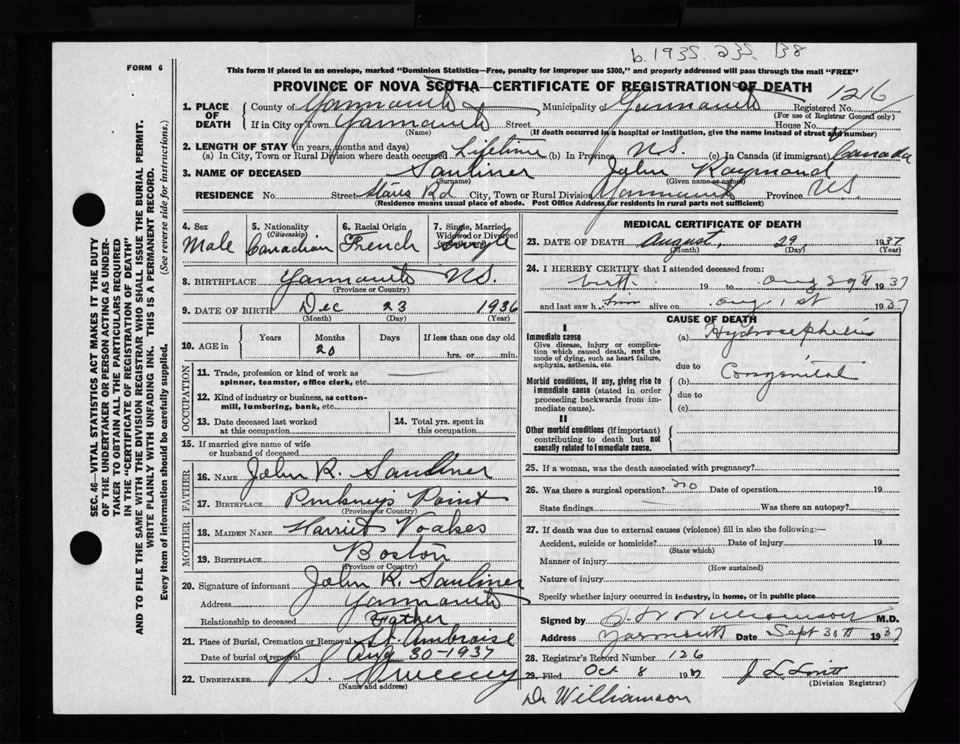 b. 1935. 235. 138
FORM 6
This form if placed in an envelope, marked "Dominion Statistics—Free, penalty for improper use $300," and properly addressed will pass through the mail "FREE"
PROVINCE OF NOVA SCOTIA—CERTIFICATE OF REGISTRATION OF DEATH
1216
1. PLACE OF DEATH County of Yarmouth Municipality of Yarmouth Registered No.
(For use of Registrar General only)
If in City or Town Yarmouth Street House No.
(Name) (If death occurred in a hospital or institution, give the name instead of street and number)
2. LENGTH OF STAY (in years, months and days)
(a) In City, Town or Rural Division where death occurred Lifetime (b) In Province N.S. (c) In Canada (if immigrant) Canada
3. NAME OF DECEASED Saulnier John Raymond
(Surname) (Given name or names)
RESIDENCE No. Street Rd City, Town or Rural Division Yarmouth Province N.S.
(Residence means usual place of abode. Post Office Address for residents in rural parts not sufficient)
SEC. 46—VITAL STATISTICS ACT MAKES IT THE DUTY OF THE UNDERTAKER OR PERSON ACTING AS UNDERTAKER TO OBTAIN ALL THE PARTICULARS REQUIRED IN THE "CERTIFICATE OF REGISTRATION OF DEATH"
AND TO FILE THE SAME WITH THE DIVISION REGISTRAR WHO SHALL ISSUE THE BURIAL PERMIT.
WRITE PLAINLY WITH UNFADING INK. THIS IS A PERMANENT RECORD.
Every item of information should be carefully supplied. (See reverse side for instructions.)
4. Sex 5. Nationality (Citizenship) 6. Racial Origin 7. Single, Married, Widowed or Divorced
Male Canadian French Single
8. BIRTHPLACE Yarmouth N.S.
(Province or Country)
9. DATE OF BIRTH Dec 23 1936
(Month) (Day) (Year)
10. AGE in Years Months Days If less than one day old
20 hrs. or min.
OCCUPATION
11. Trade, profession or kind of work as spinner, teamster, office clerk, etc.
12. Kind of industry or business, as cotton-mill, lumbering, bank, etc.
13. Date deceased last worked at this occupation 14. Total yrs. spent in this occupation
15. If married give name of wife or husband of deceased
FATHER
16. NAME John R. Saulnier
17. BIRTHPLACE Pinkney's Point
(Province or Country)
MOTHER
18. MAIDEN NAME Harriet Voakes
19. BIRTHPLACE Boston
(Province or Country)
20. Signature of informant John R. Saulnier
Address Yarmouth
Relationship to deceased Father
21. Place of Burial, Cremation or Removal St. Ambroise
Date of burial or removal Aug 30-1937
22. UNDERTAKER V S. Sweeney
(Name and address)
MEDICAL CERTIFICATE OF DEATH
23. DATE OF DEATH August, 29, 1937
(Month) (Day) (Year)
24. I HEREBY CERTIFY that I attended deceased from:
birth 19 to Aug 29th 1937
and last saw him alive on Aug 1st 1937
CAUSE OF DEATH
I
Immediate cause (a) Hydrocephelis
Give disease, injury or complication which caused death, not the mode of dying, such as heart failure, asphyxia, asthenia, etc.
due to Congenital
Morbid conditions, if any, giving rise to immediate cause (stated in order proceeding backwards from immediate cause).
(b)
due to
(c)
II
Other morbid conditions (if important) contributing to death but not causally related to immediate cause.
25. If a woman, was the death associated with pregnancy?
26. Was there a surgical operation? no Date of operation 19
State findings Was there an autopsy?
27. If death was due to external causes (violence) fill in also the following:—
Accident, suicide or homicide? Date of injury 19
(State which)
Manner of injury
(How sustained)
Nature of injury
Specify whether injury occurred in industry, in home, or in public place
Signed by Williamson M.D.
Address Yarmouth Date Sept 30th 1937
28. Registrar's Record Number 126
29. Filed Oct 8 1937
(Division Registrar)
Dr Williamson